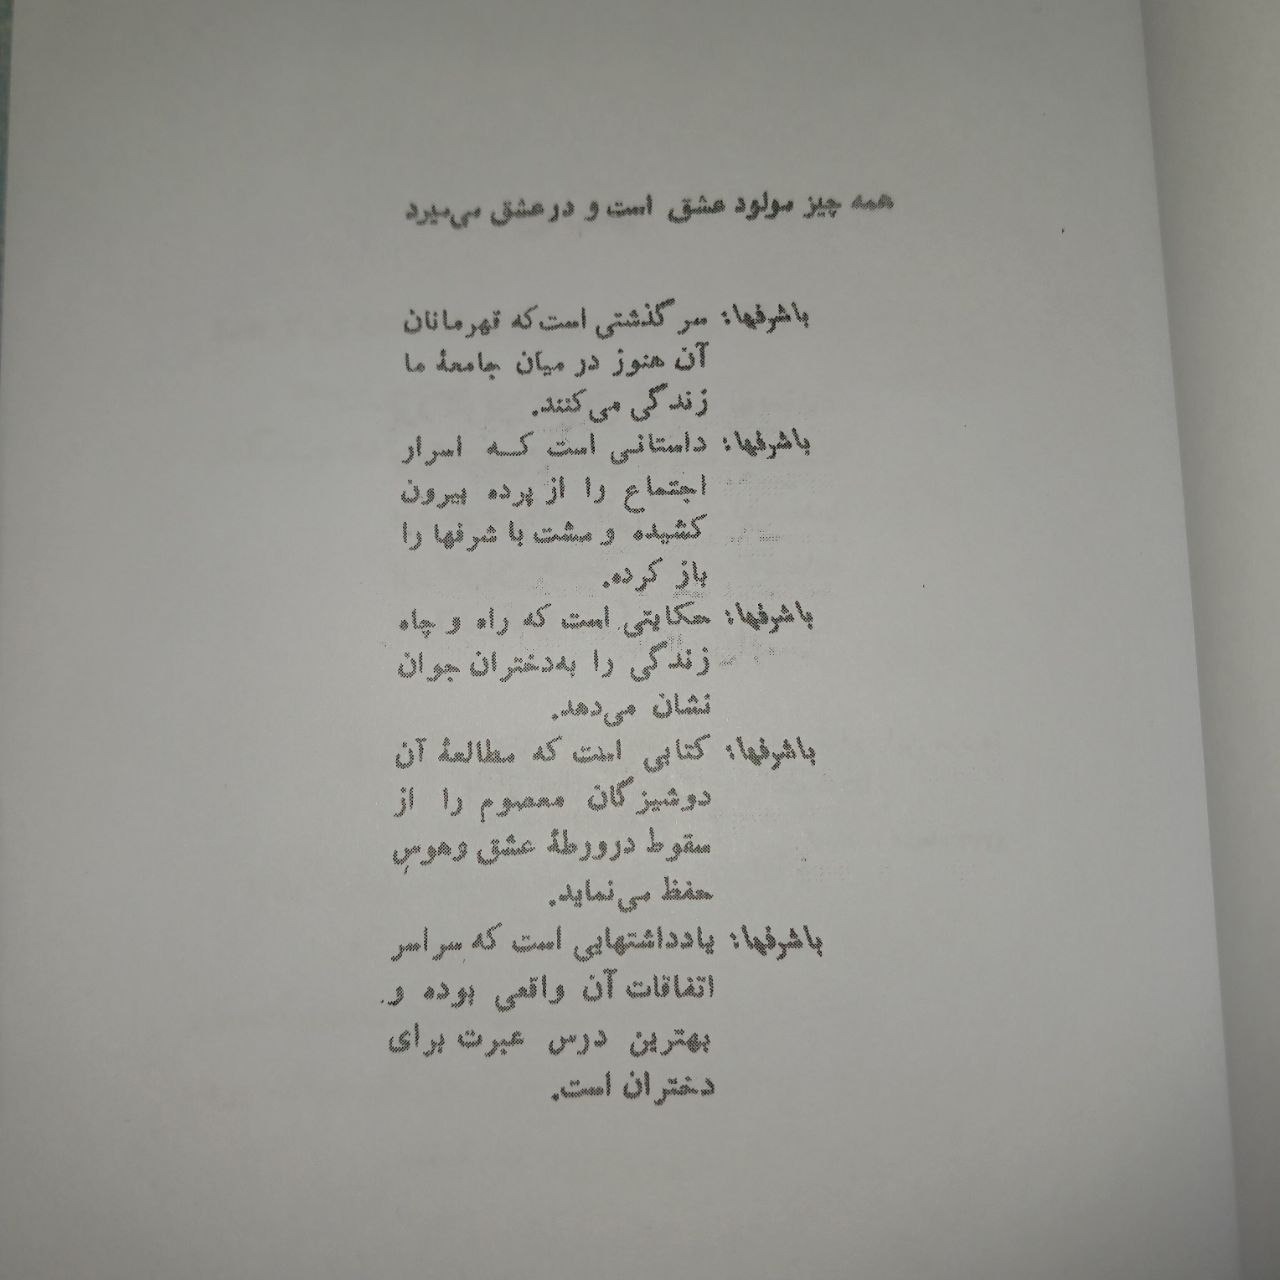 همه چیز مولود عشق است و در عشق می‌میرد
باشرفها: سر گذشتی است که قهرمانان
آن هنوز در میان جامعهٔ ما
زندگی می‌کنند.
باشرفها: داستانی است کـه اسرار
اجتماع را از پرده بیرون
کشیده و مشت با شرفها را
باز کرده.
باشرفها: حکایتی است که راه و چاه
زندگی را به‌دختران جوان
نشان می‌دهد.
باشرفها: کتابی است که مطالعهٔ آن
دوشیزگان معصوم را از
سقوط درورطهٔ عشق وهوس
حفظ می‌نماید.
باشرفها: یادداشتهایی است که سراسر
اتفاقات آن واقعی بوده و
بهترین درس عبرت برای
دختران است.